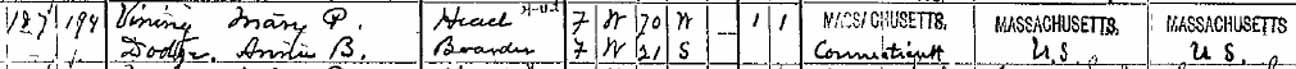 187 194 Vining Mary P. Head F W 70 W 1 1 MASSACHUSETTS. MASSACHUSETTS. MASSACHUSETTS
Dodge, Annie B. Boarder F W 21 S Connecticutt U.S. U.S.